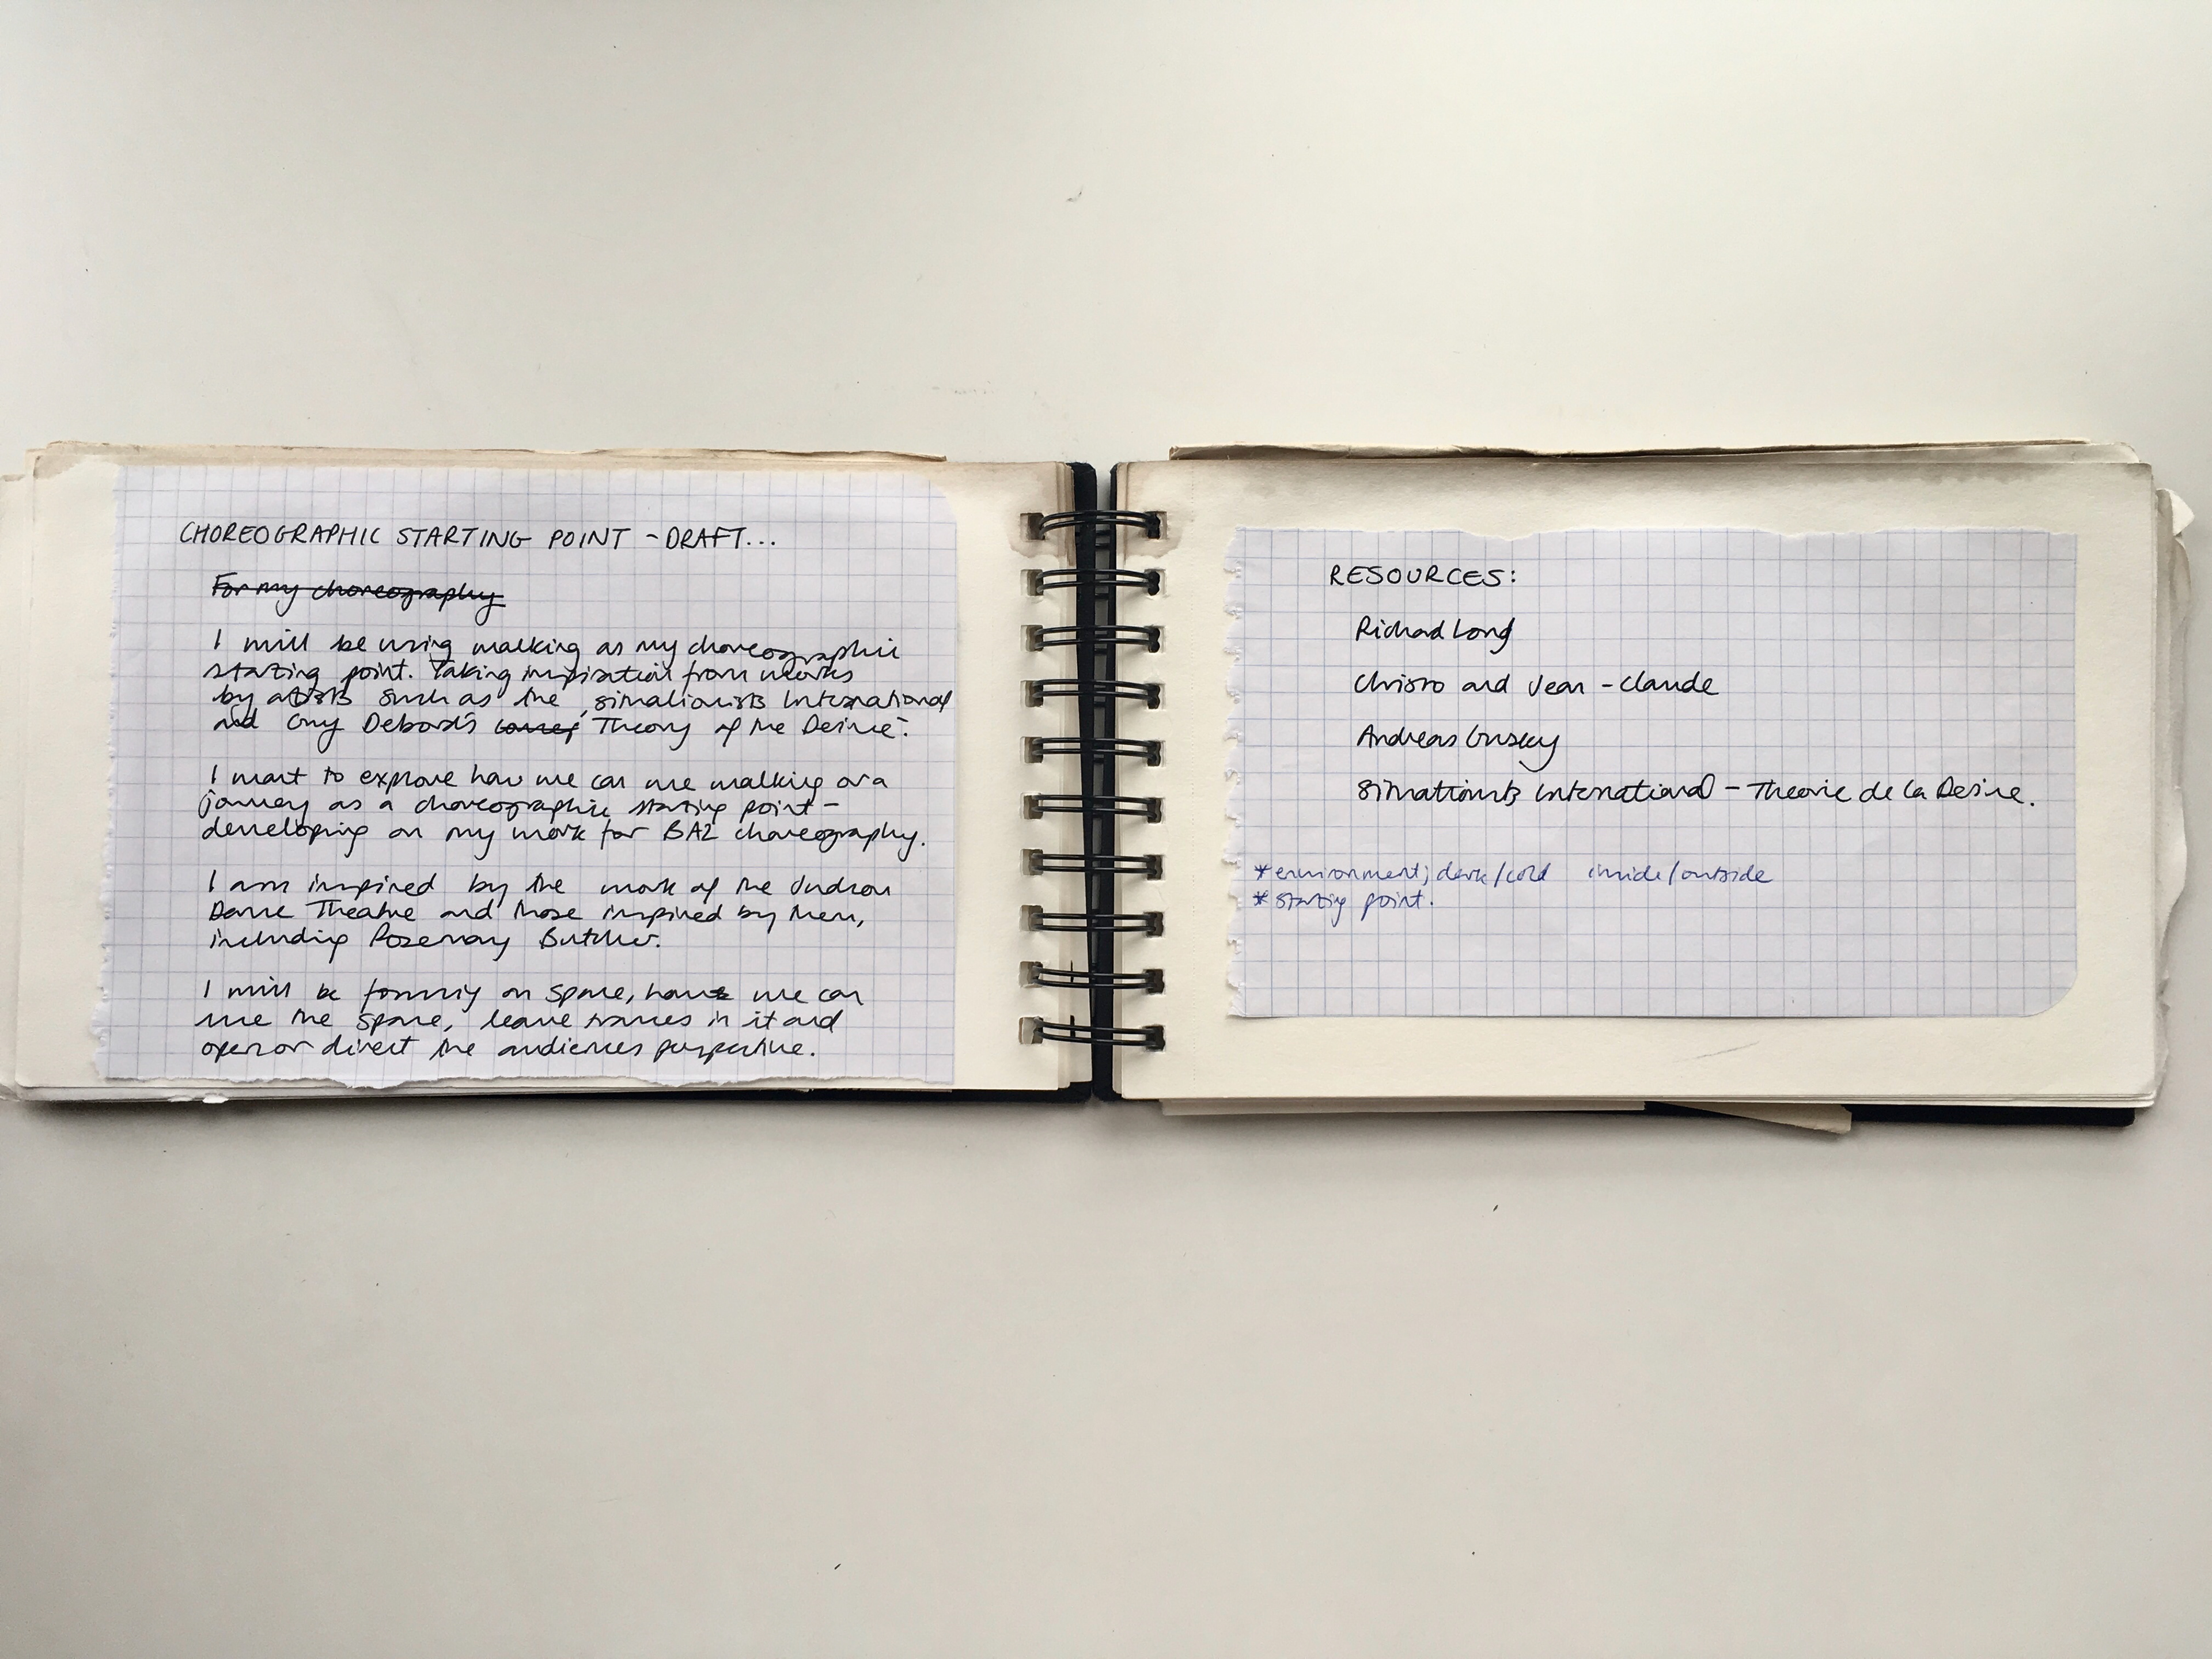 CHOREOGRAPHIC STARTING POINT - DRAFT...
For my choreography
I will be using walking as my choreographic
starting point. Taking inspiration from works
by artists such as the situationists International
and Guy Debord's Theory of the Derive.
I want to explore how we can use walking or a
journey as a choreographic starting point -
developing on my work for BA2 choreography.
I am inspired by the work of the Judson
Dance Theatre and those inspired by them,
including Rosemary Butcher.
I will be focusing on space, how we can
use the space, leave traces in it and
open or divert the audiences perspective.
RESOURCES:
Richard Long
Christo and Jean-Claude
Andreas Gursky
Situationists International - Theorie de la Derive.
* environment; dark/cold inside/outside
* starting point.